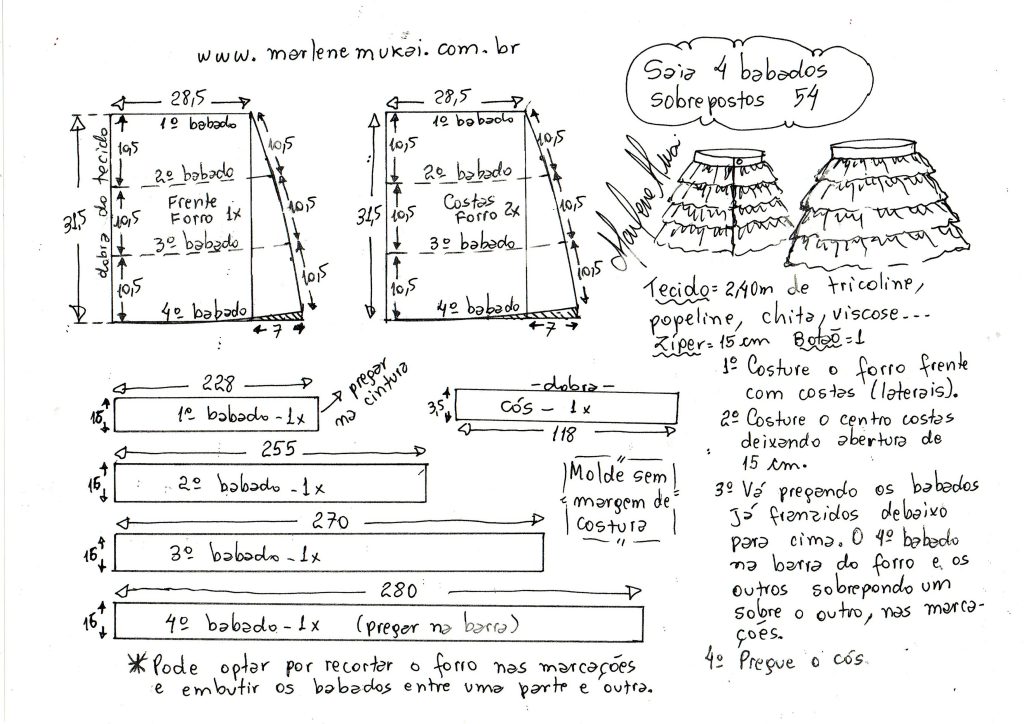 www.marlenemukai.com.br
Saia 4 babados
sobrepostos 54
28,5
1º babado
10,5
10,5
2º babado
31,5
dobra do tecido
Frente
Forro 1x
10,5
10,5
3º babado
10,5
10,5
4º babado
7
28,5
1º babado
10,5
10,5
2º babado
31,5
Costas
Forro 2x
10,5
10,5
3º babado
10,5
10,5
4º babado
7
Marlene Mukai
Tecido = 2,40m de tricoline,
popeline, chita, viscose...
Zíper = 15 cm Botão = 1
1º Costure o forro frente
com costas (laterais).
2º Costure o centro costas
deixando abertura de
15 cm.
3º Vá pregando os babados
já franzidos debaixo
para cima. O 4º babado
na barra do forro e os
outros sobrepondo um
sobre o outro, nas marca-
ções.
4º Pregue o cós.
228
15
1º babado - 1x
pregar
na cintura
255
15
2º babado - 1x
270
15
3º babado - 1x
280
15
4º babado - 1x (pregar na barra)
- dobra -
3,5
cós - 1x
118
Molde sem
margem de
costura
* Pode optar por recortar o forro nas marcações
e embutir os babados entre uma parte e outra.